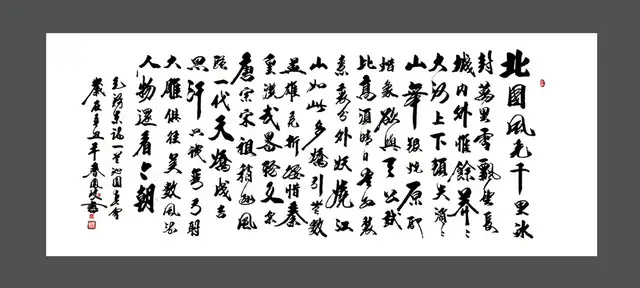 北國風光千里冰
封萬里雪飄望長
城内外惟餘莽々
大河上下頓失滔々
山舞銀蛇原馳
蜡象欲與天公試
比高須晴日看紅裝
素裹分外妖嬈江
山如此多嬌引無數
英雄競折腰惜秦
皇漢武略輸文采
唐宗宋祖稍遜風
騷一代天驕成吉
思汗只識彎弓射
大雕俱往矣數風流
人物還看今朝
毛澤東詞一首沁園春雪
歲在辛丑年春